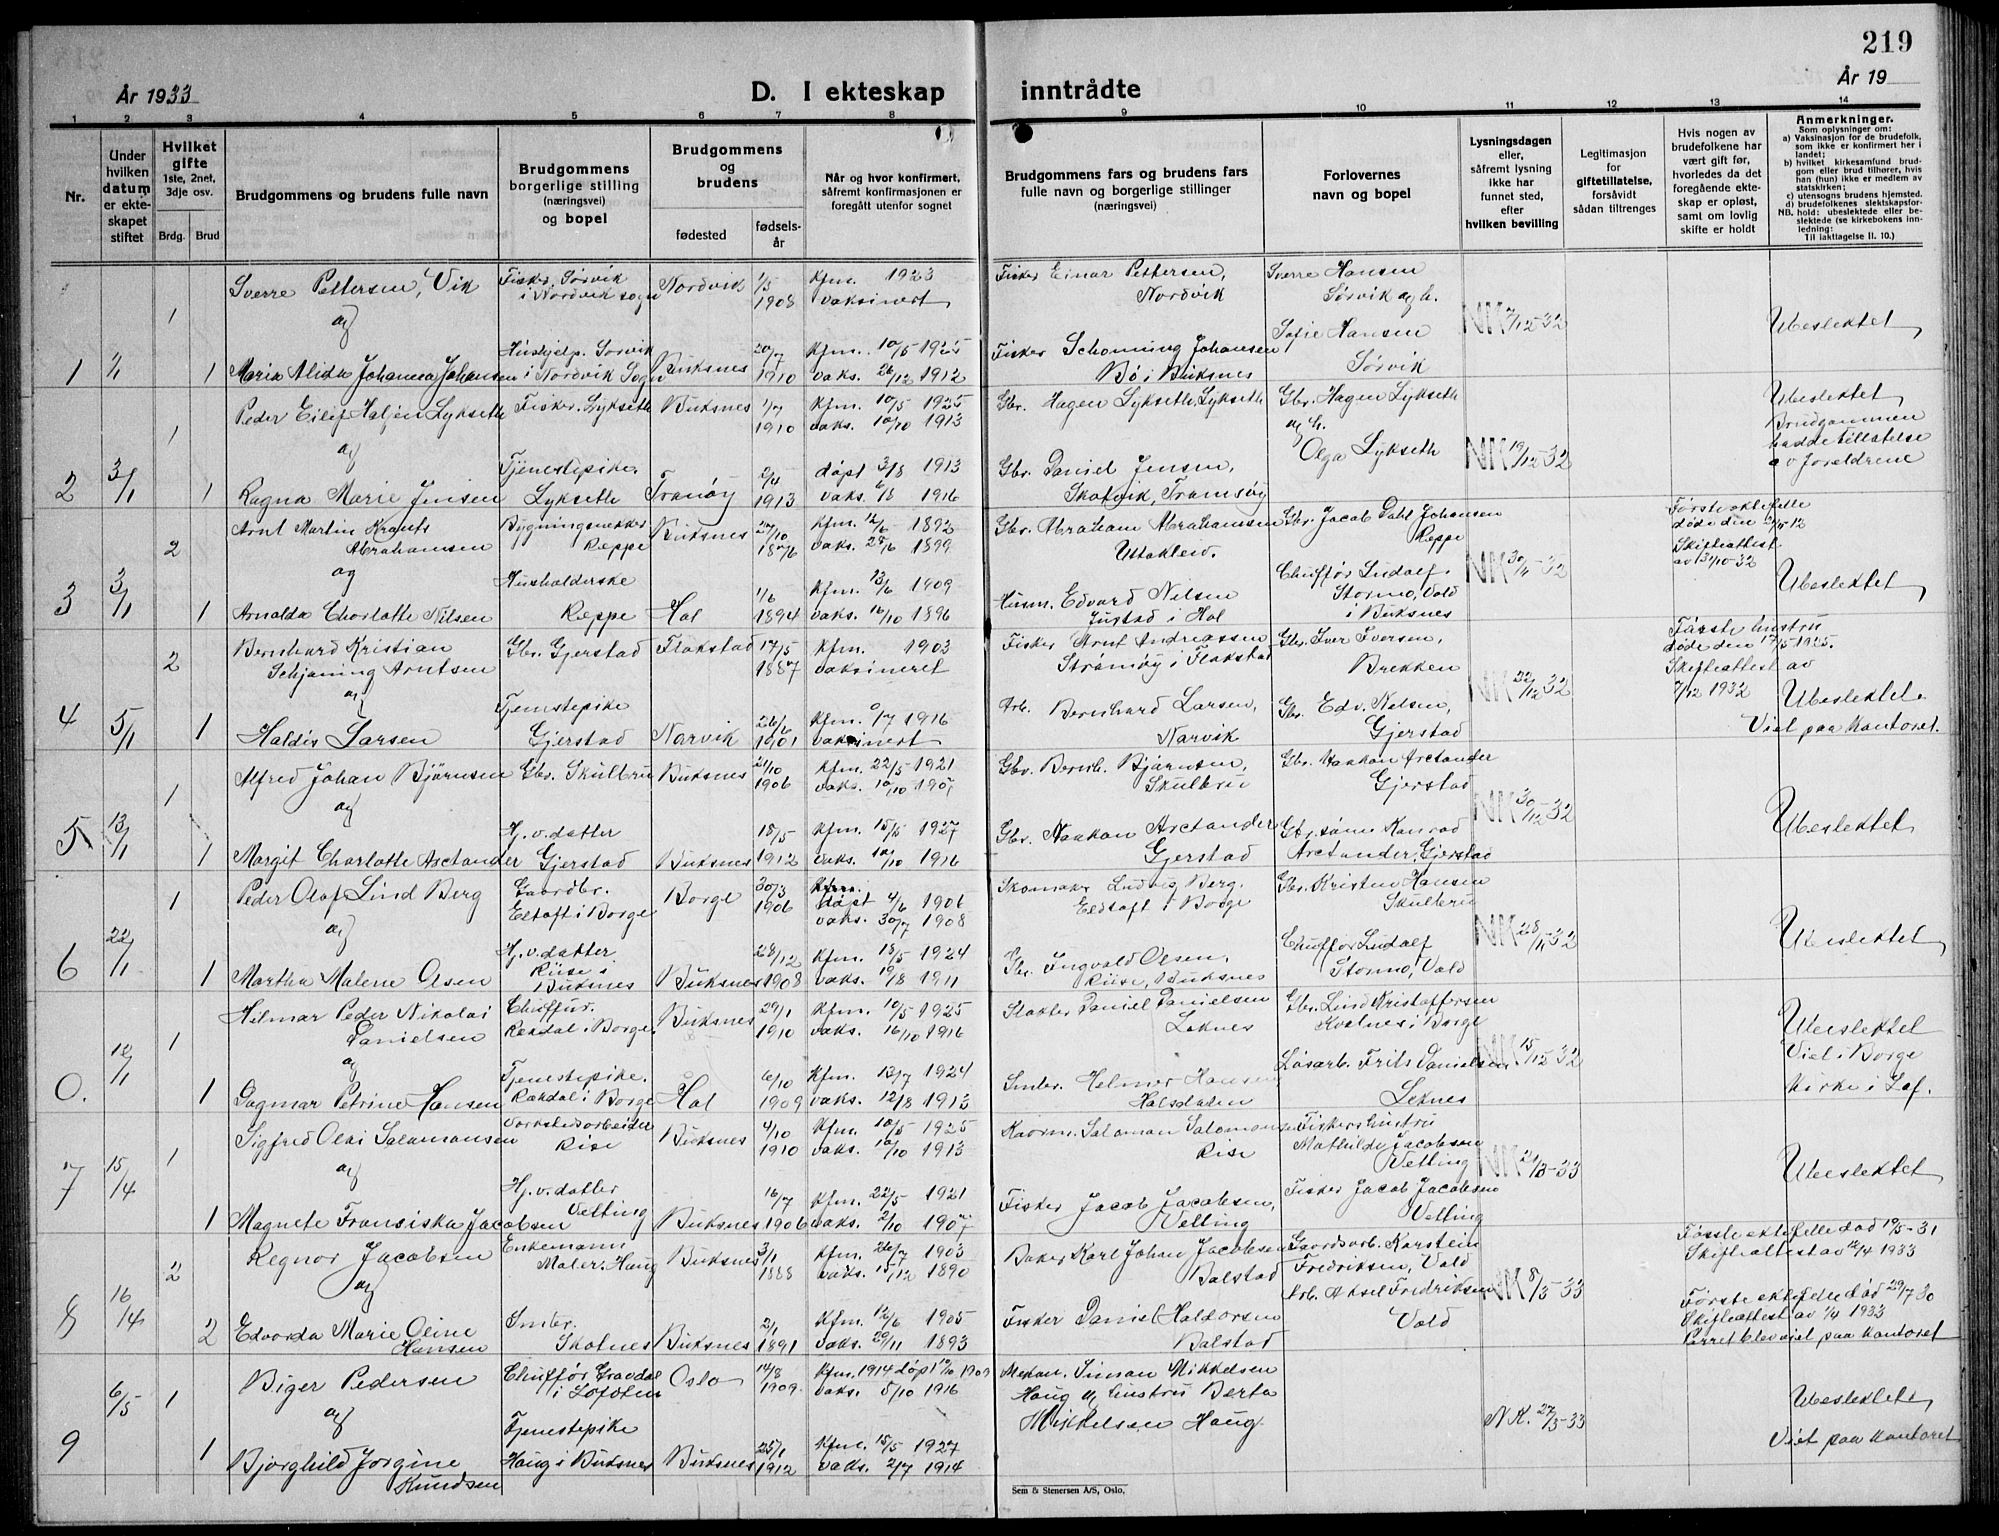 219
År 1933
D. I ekteskap inntrådte
År 19
1 2 3 4 5 6 7 8 9 10 11 12 13 14
Nr.
Under hvilken datum er ekteskapet stiftet
Hvilket gifte 1ste, 2net, 3dje osv.
Brdg. Brud
Brudgommens og brudens fulle navn
Brudgommens borgerlige stilling (næringsvei) og bopel
Brudgommens og brudens
fødested
fødselsår
Når og hvor konfirmert, såfremt konfirmasjonen er foregått utenfor sognet
Brudgommens fars og brudens fars fulle navn og borgerlige stillinger (næringsvei)
Forlovernes navn og bopel
Lysningsdagen eller, såfremt lysning ikke har funnet sted, efter hvilken bevilling
Legitimasjon for giftetillatelse, forsåvidt sådan tiltrenges
Hvis nogen av brudefolkene har vært gift før, hvorledes da det foregående ekteskap er opløst, samt om lovlig skifte er holdt
Anmerkninger.
Som oplysninger om:
a) Vaksinasjon for de brudefolk, som ikke er konfirmert her i landet;
b) hvilket kirkesamfund brudgom eller brud tilhører, hvis han (hun) ikke er medlem av statskirken;
c) utensogns brudens hjemsted.
d) brudefolkenes slektskapsforhold: ubeslektede eller beslektede (se kirkebokens innledning:
NB. Til iakttagelse II. 10.)
1 1/1 1 Sverre Pettersen, Vik Fisker, Sørvik i Nordvik sogn Nordvik 1/5 1908 Kfm. 1923 vaksinert Fisker Einar Pettersen, Nordvik Sverre Hansen Sørvik og h. NK 2/12-32 Ubeslektet
og
1 Maria Alida Johanna Johansen Hushjelp. Sørvik i Nordvik Sogn Buksnes 20/7 1910 Kfm. 10/5 1925 vaks. 26/12 1912 Fisker Schoning Johansen Bø i Buksnes Sofie Hansen Sørvik
2 3/1 1 Peder Eilif Haljen Lykseth Fisker. Lykseth Buksnes 1/7 1910 Kfm. 10/5 1925 vaks. 10/10 1913 Gbr. Hagen Lykseth, Lykseth Gbr. Hagen Lykseth og h. NK 19/12-32 Ubeslektet Brudgommen hadde tillatelse av foreldrene
og
1 Ragna Marie Jensen Tjenestepike. Lykseth Tranøy 2/4 1913 døpt 3/8 1913 vaks. 6/8 1916 Gbr. Daniel Jensen, Skatvik, Tramsøy Olga Lykseth
3 3/1 2 Arnt Martin Krants Abrahamsen Bygningssnekker Reppe Buksnes 27/10 1876 Kfm. 12/6 1892 vaks. 25/6 1899 Gbr. Abraham Abrahamssen Uttakleiv. Gbr. Jacob Dahl Johansen Reppe NK 30/11-32 Første ektefelle døde den 21/5 12 Skifteattest av 13/10-32 Ubeslektet
og
1 Arnalda Charlotte Nilsen Husholderske Reppe Hol 1/6 1894 Kfm. 13/6 1909 vaks. 16/10 1896 Husm. Edvard Nilsen Justad i Hol Chuffør Ludolf Stormo, Vold i Buksnes
4 5/1 2 Bernhard Kristian Schjøning Arntsen Gbr. Gjerstad Flakstad 17/5 1887 Kfm. 1903 vaksineret Fisker Arnt Andreassen Strømøy i Flakstad Gbr. Iver Iversen, Brekken NK 22/12 32 Første hustru døde den 17/5 1925. Skifteattest av 7/12 1932 Ubeslektet. Viet paa kontoret.
og
1 Haldis Larsen Tjenestepike Gjerstad Narvik 26/6 1901 Kfm. 9/7 1916 vaksinert Arb. Bernhard Larsen, Narvik Gbr. Edv. Nelsen, Gjerstad
5 13/1 1 Alfred Johan Bjørnsen Gbr. Skulbru Buksnes 21/10 1906 Kfm. 22/5 1921 vaks. 10/10 1907 Gbr. Bernh. Bjørnsen, Skulbru Gbr. Haakon Arctander Gjerstad NK 30/12 32 Ubeslektet
og
1 Margit Charlotte Arctander Hj. v. datter Gjerstad Buksnes 18/5 1912 Kfm. 15/5 1927 vaks. 10/10 1916 Gbr. Haakon Arctander Gjerstad Gbr. sønn Konrad Arctander, Gjerstad
6 22/1 1 Peder Olaf Lind Berg Gaardbr. Eltoft i Borge Borge 30/3 1906 døpt 4/6 1906 vaks. 30/7 1908 Skomaker Ludvig Berg. Eldtoft i Borge Gbr. Kristen Hansen Skulbru NK 28/11-32 Ubeslektet
og
1 Martha Malene Olsen Hj. v. datter Riise i Buksnes Buksnes 28/12 1908 Kfm. 18/5 1924 vaks. 19/8 1911 Gbr. Ingvald Olsen, Riise, Buksnes Chuffør Ludolf Stormo, Vold
0. 12/1 1 Hilmar Peder Nikolai Danielsen Chuffør. Rækdal i Borge. Buksnes 29/1 1910 Kfm. 10/5 1925 vaks. 16/10 1916 Slakter Daniel Danielsen Leknes Gbr. Lind Kristoffersen Kvalnes i Borge NK 15/12-32 Ubeslektet Viet i Borge Kirke i Lof.
og
1 Dagmar Petrine Hansen Tjenestepike. Rækdal i Borge Hol 6/10 1909 Kfm. 13/7 1924 vaks. 12/8 1913 Smbr. Helmer Hansen Holsdalen Løsarb. Frits Danielsen Leknes
7 15/4 1 Sigfred Olai Salamonsen Verkstedsarbeider Rise Buksnes 4/10 1910 Kfm. 10/5 1925 vaks. 10/10 1913 Kaarm. Salomon Salomonsen Rise Fiskerhustru Mathilde Jacobsen Vetting NK 21/3-33 Ubeslektet
og
1 Magnete Fransiska Jacobsen Hj. v. datter Vetting Buksnes 16/7 1906 Kfm. 22/5 1921 vaks. 2/10 1907 Fisker Jacob Jacobsen, Vetting Fisker Jacob Jacobsen Vetting
8 16/4 2 Regnor Jacobsen Enkemann Maler. Haug Buksnes 3/1 1888 Kfm. 26/7 1903 vaks. 15/12 1890 Baker Karl Johan Jacobsen Balstad Gaardsarb. Karstein Fredriksen, Vold NK 8/3-33 Første ektefelle død 19/5-31 Skifteattest av 12/4 1933
og
2 Edvarda Marie Oline Hansen Smbr. Skotnes Buksnes 2/1 1891 Kfm. 12/6 1905 vaks. 29/11 1893 Fisker Daniel Haldorsen Balstad Arb. Aksel Fredriksen Vold Første ektefelle død 29/7 30 Skifteattest av 1/4 1933 Parret blev viet paa kontoret
9 6/5 1 Biger Pedersen Chuffør, Gravdal i Lofoten Oslo 14/8 1909. Kfm. 1914 døpt 19/10 1909 vaks. 5/10 1916 Mekan. Simon Mikkelsen Haug og hustru Berta Mikkelsen Haug. N.K. 27/3-33 Ubeslektet Viet paa kontoret
og
1 Bjørghild Jørgine Knudsen Tjenestepike Haug i Buksnes Buksnes 25/1 1912 Kfm. 15/5 1927 vaks. 2/7 1914
Sem & Stenersen A/S, Oslo.